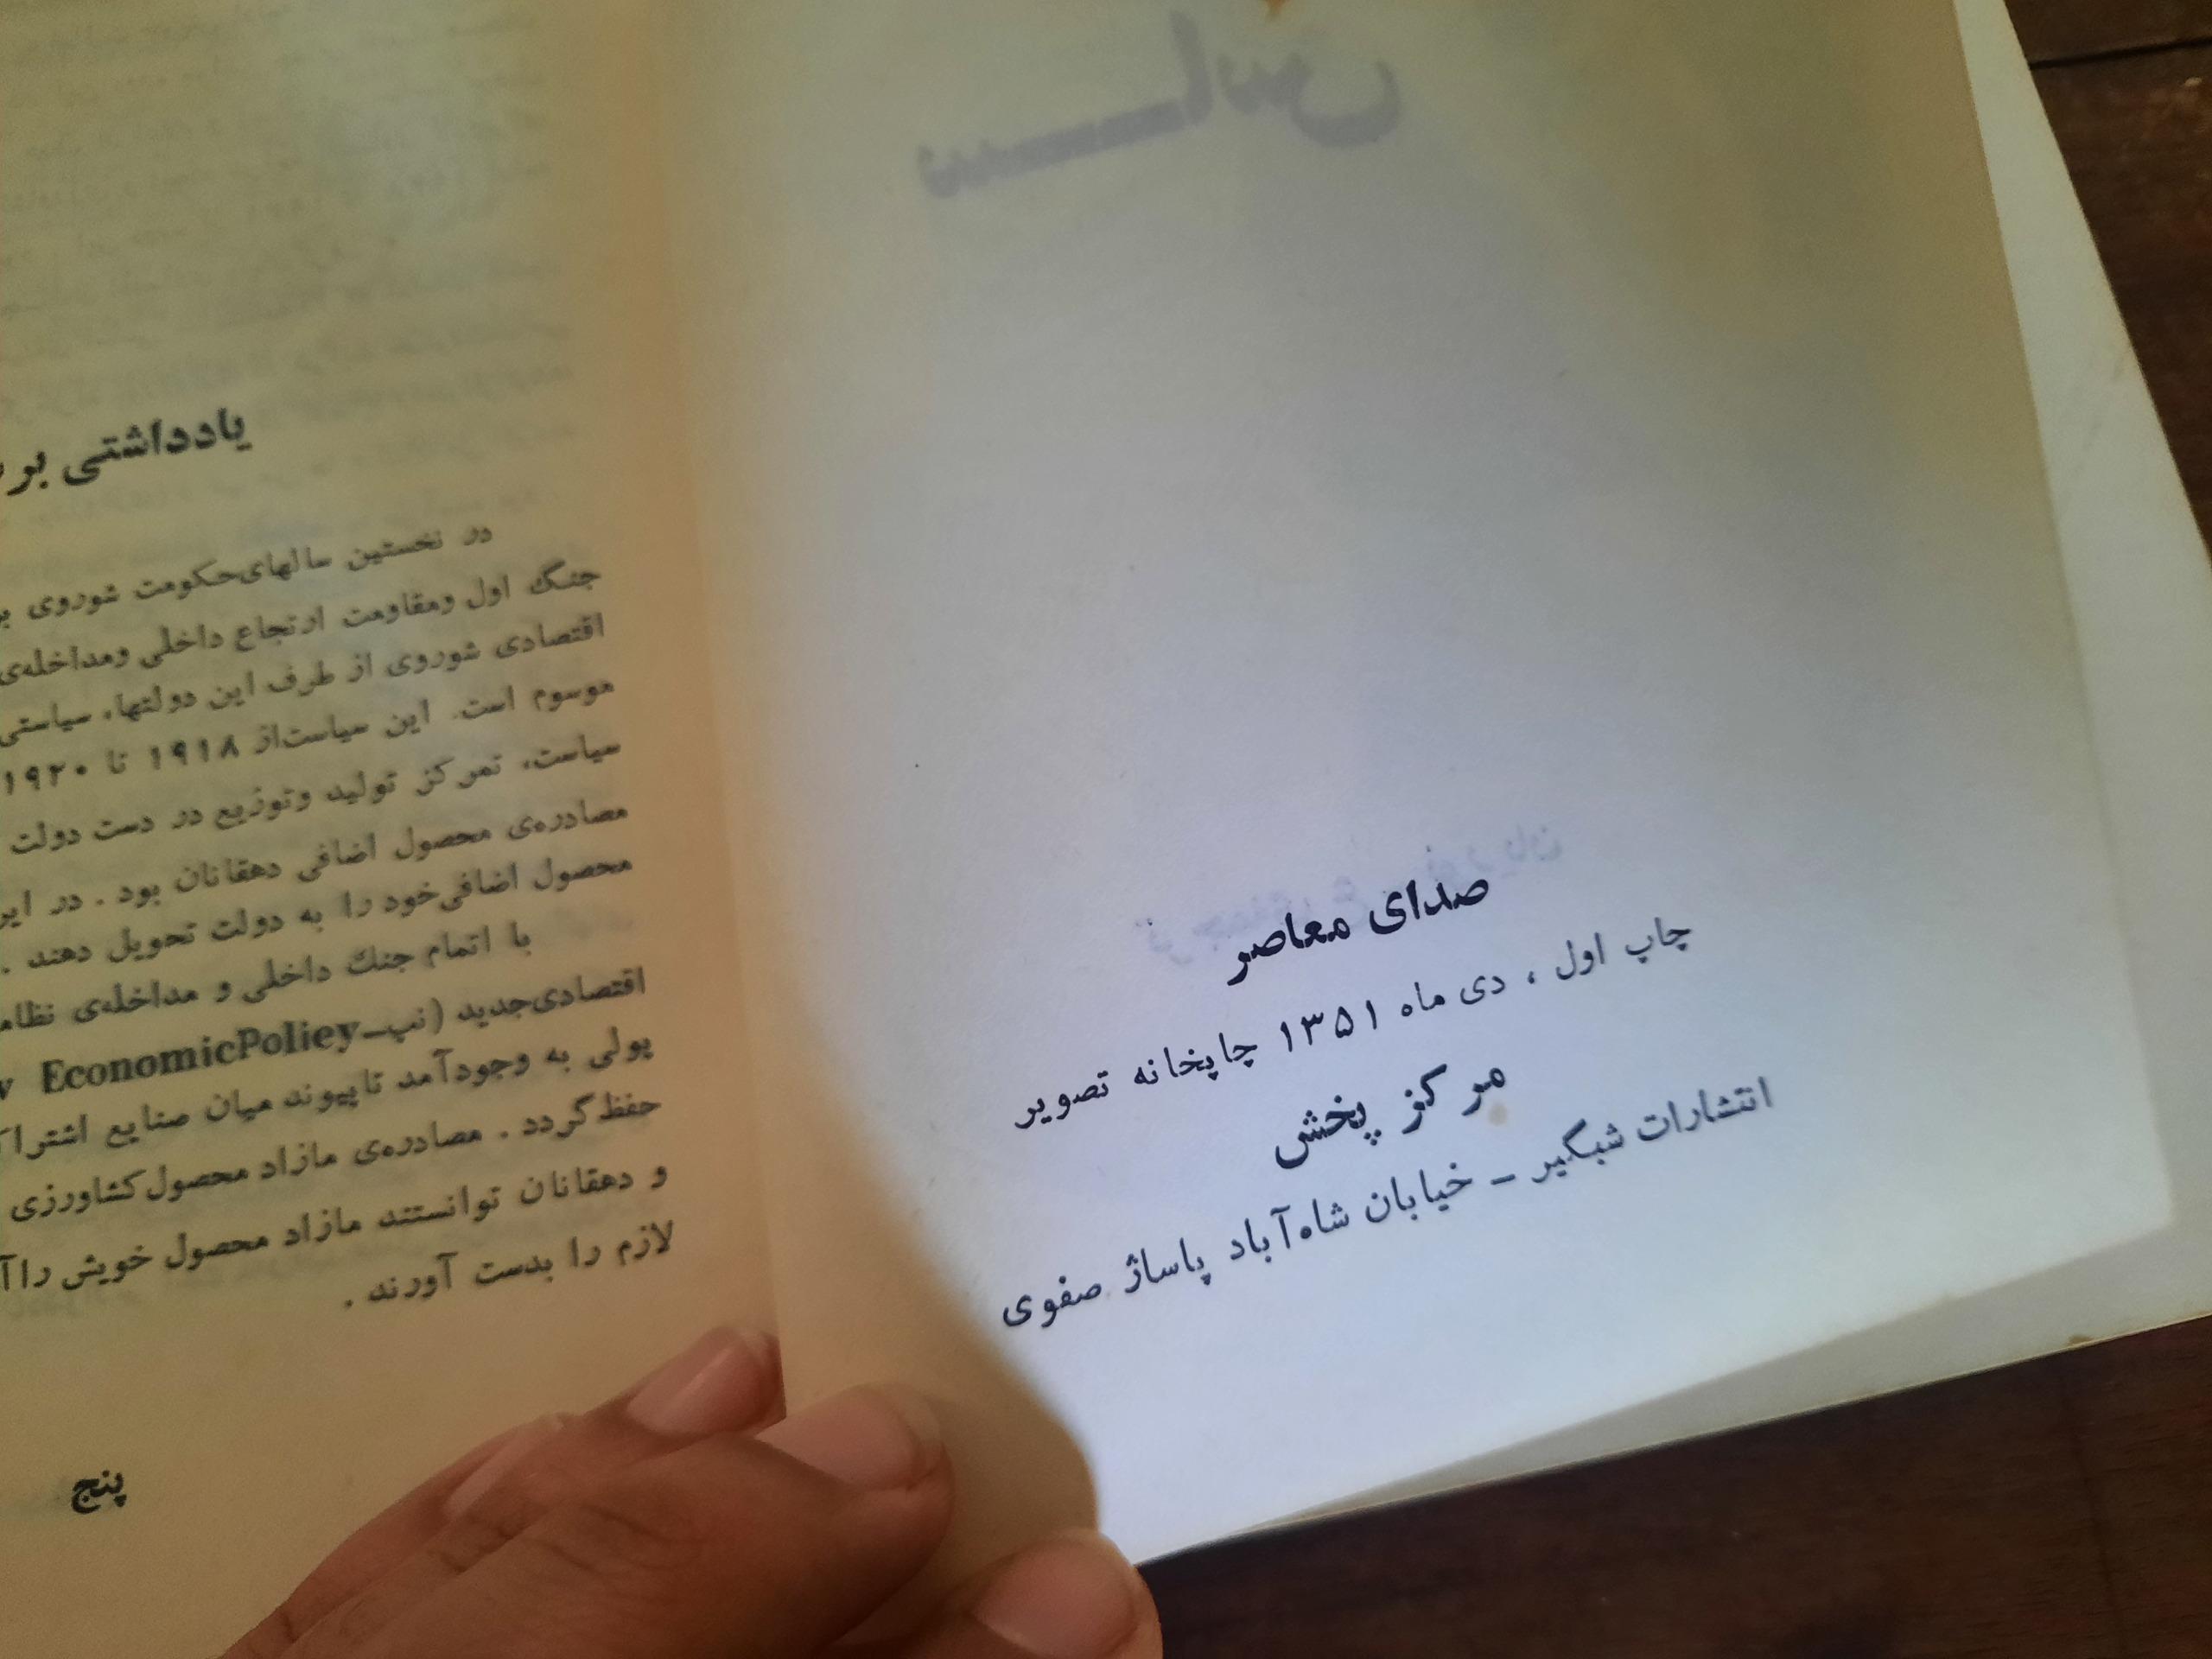 صدای معاصر
چاپ اول ، دی ماه ۱۳۵۱ چاپخانه تصویر
مرکز پخش
انتشارات شبگیر – خیابان شاه‌آباد پاساژ صفوی
یادداشتی بر
در نخستین سالهای‌حکومت شوروی
جنگ اول ومقاومت ارتجاع داخلی ومداخله‌ی
اقتصادی شوروی از طرف این دولتها، سیاستی
موسوم است. این سیاست‌از ۱۹۱۸ تا ۱۹۲۰
سیاست، تمرکز تولید وتوزیع در دست دولت
مصادره‌ی محصول اضافی دهقانان بود . در
محصول اضافی‌خود را به دولت تحویل دهند .
با اتمام جنك داخلی و مداخله‌ی
اقتصادی‌جدید (نپ_EconomicPoliey
پولی به وجودآمد تاپیوند میان صنایع
حفظ‌گردد . مصادره‌ی مازاد محصول‌کشاورزی
و دهقانان توانستند مازاد محصول خویش را
لازم را بدست آورند .
پنج